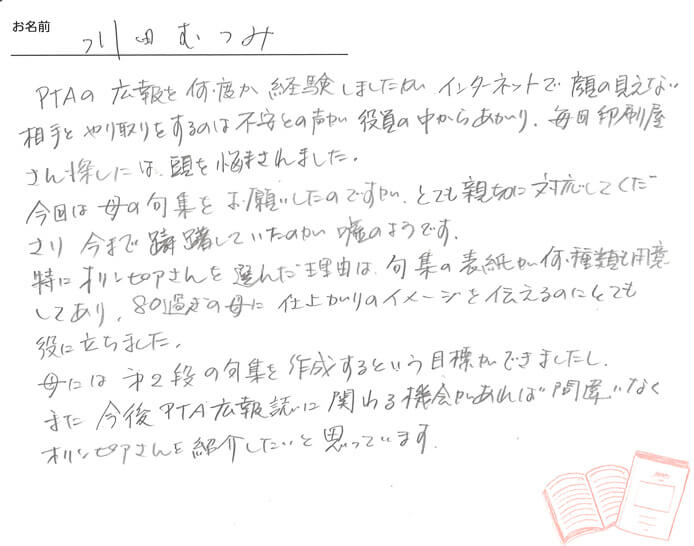 お名前
川田むつみ
PTAの広報を何度か経験しましたが、インターネットで顔の見えない
相手とやり取りをするのは不安との声が役員の中からあがり、毎回印刷屋
さん探しには、頭を悩まされました。
今回は母の句集をお願いしたのですが、とても親切に対応してくだ
さり今まで躊躇していたのが嘘のようです。
特にオリンピアさんを選んだ理由は、句集の表紙が何種類も用意
してあり、80過ぎの母に仕上がりのイメージを伝えるのにとても
役に立ちました。
母には第2段の句集を作成するという目標ができましたし、
また今後PTA広報誌に関わる機会があれば間違いなく
オリンピアさんを紹介したいと思っています。